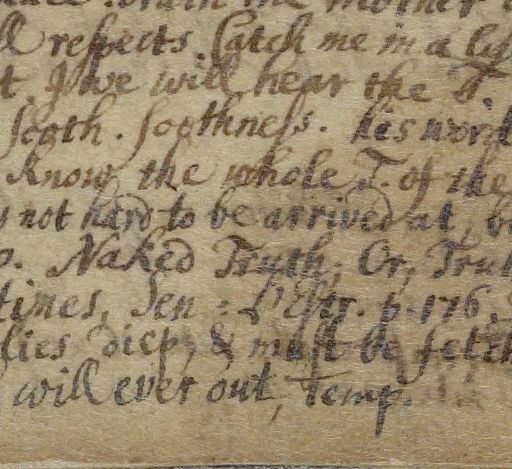 the mother
ll respects. Catch me in a ly
t, If we will hear the T.
sooth. soothness. his word
know the whole T. of the
s not hard to be arrived at, b
o. Naked Truth; Or, Trut
times, Sen: L'Estr. p. 176.
lies diep, & must be fetch
will ever out, Temp.